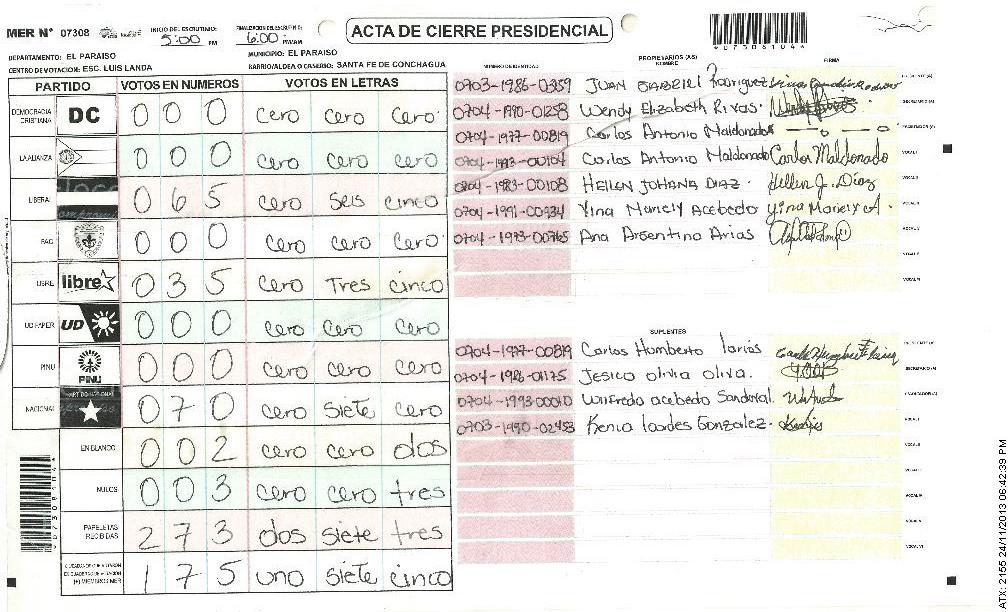 MER N° 07308
INICIO DEL ESCRUTINIO: 5:00 PM
FINALIZACION DEL ESCRUTINIO: 6:00 PM/AM
ACTA DE CIERRE PRESIDENCIAL
DEPARTAMENTO: EL PARAISO
MUNICIPIO: EL PARAISO
CENTRO DE VOTACION: ESC. LUIS LANDA
BARRIO/ALDEA O CASERIO: SANTA FE DE CONCHAGUA
PARTIDO VOTOS EN NUMEROS VOTOS EN LETRAS
DEMOCRACIA CRISTIANA DC 0 0 0 cero cero cero
LA ALIANZA 0 0 0 cero cero cero
LIBERAL 0 6 5 cero seis cinco
PAC 0 0 0 cero cero cero
LIBRE libre 0 3 5 cero Tres cinco
UD FAPER UD 0 0 0 cero cero cero
PINU PINU 0 0 0 cero cero cero
NACIONAL 0 7 0 cero siete cero
EN BLANCO 0 0 2 cero cero dos
NULOS 0 0 3 cero cero tres
PAPELETAS RECIBIDAS 2 7 3 dos siete tres
(+) MIEMBROS MER 1 7 5 uno siete cinco
NUMERO DE IDENTIDAD PROPIETARIOS (AS) NOMBRE FIRMA
0703-1986-0359 JUAN GABRIEL Rodriguez PRESIDENTE (A)
0704-1990-01258 Wendy Elizabeth Rivas SECRETARIO (A)
0704-1977-00819 Carlos Antonio Maldonado ESCRUTADOR (A)
0704-1993-00104 Carlos Antonio Maldonado Carlos Maldonado VOCAL I
0704-1983-00108 HELLEN JOHANA DIAZ Hellen J. Díaz VOCAL II
0704-1991-00934 Yina Mariely Acebedo Yina Mariely A. VOCAL III
0704-1973-00765 Ana Argentina Arias
SUPLENTES
0704-1977-00819 Carlos Humberto larios
0704-1986-01175 Jesica olivia oliva.
0704-1993-00010 Wilfredo acebedo Sandoval
0703-1990-02453 Kenia lordes Gonzalez
0730810 44
ATX: 2155 24/11/2013 06:42:39 PM